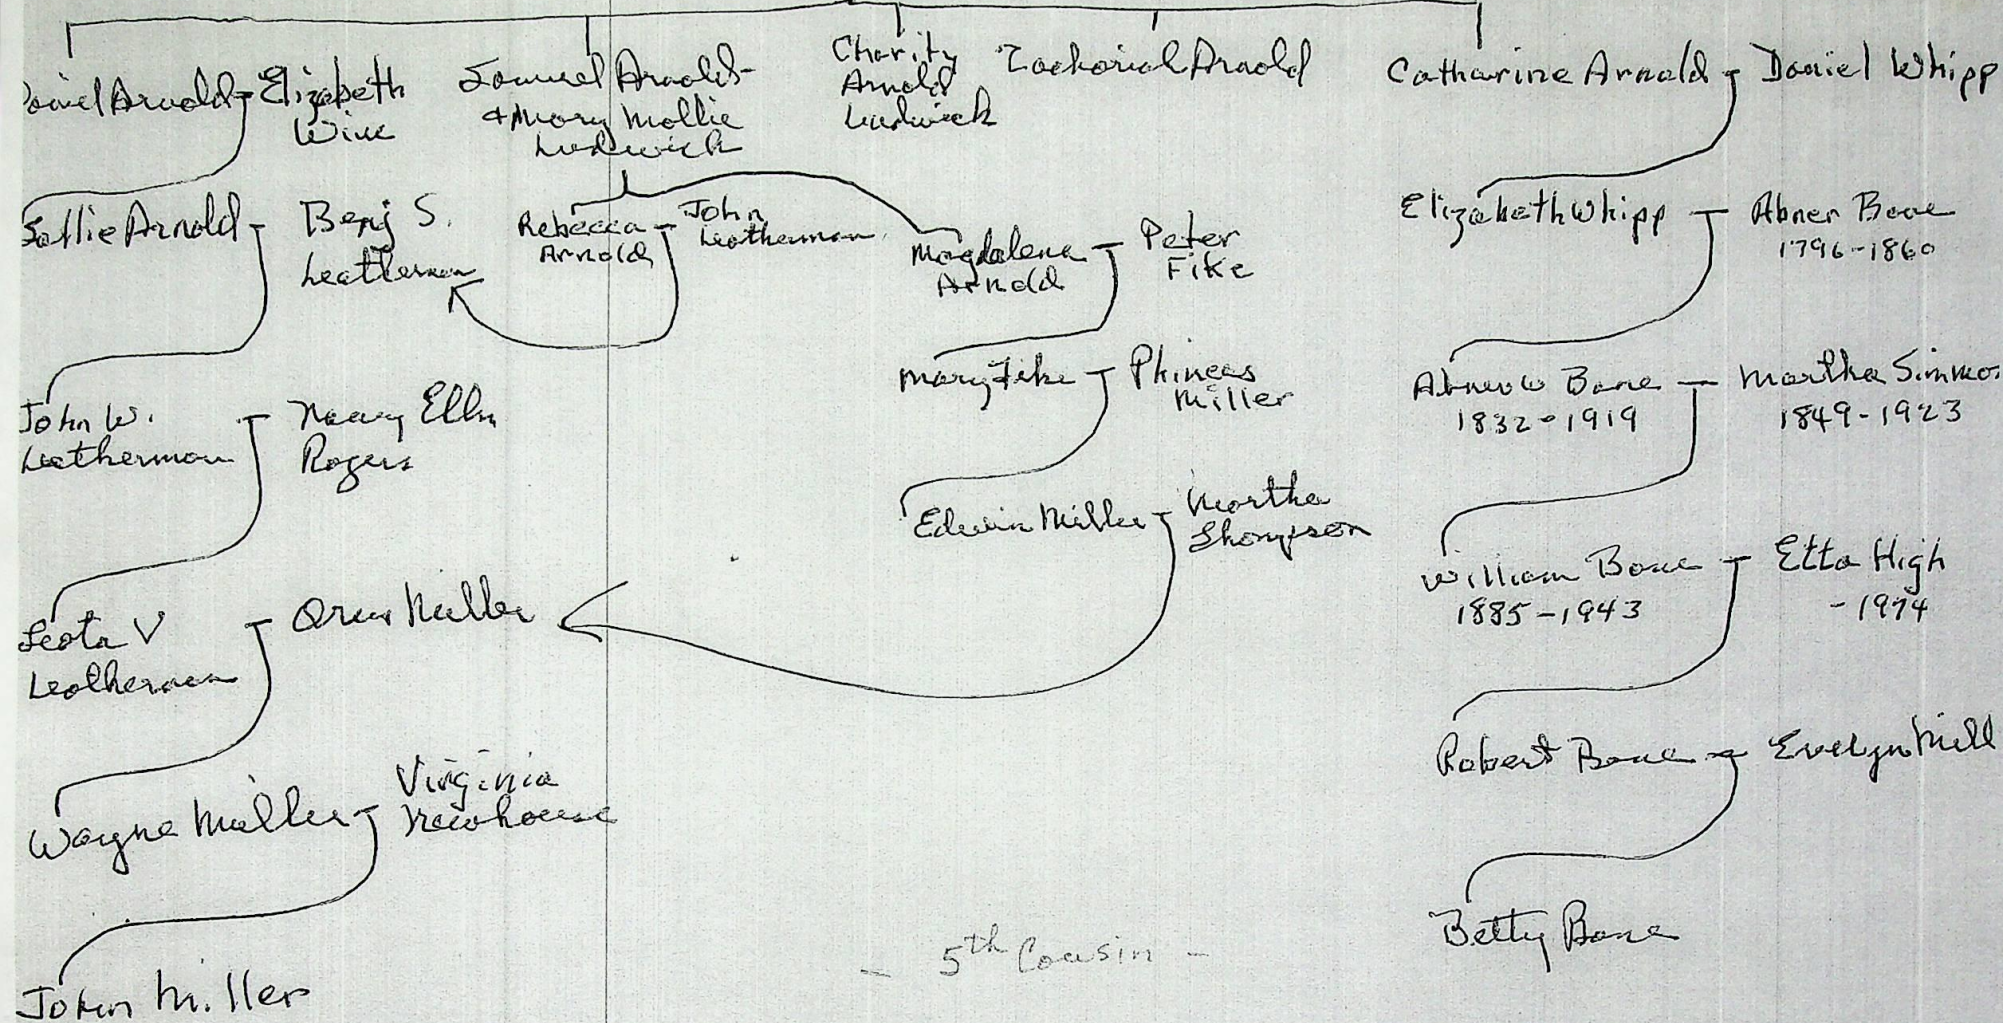 Daniel Arnold - Elizabeth
Wine
Samuel Arnold-
& Mary Mollie
Ludwick
Charity
Arnold
Ludwick
Zachariah Arnold
Catharine Arnold - Daniel Whipp
Sallie Arnold - Benj S.
Leatherman
Rebecca
Arnold - John
Leatherman
Magdalena
Arnold - Peter
Fike
Elizabeth Whipp - Abner Bane
1796-1860
John W.
Leatherman - Nancy Ellen
Rogers
Mary Fike - Phineas
Miller
Abner W Bane - Martha Simmo
1832-1919
1849-1923
Edwin Miller - Martha
Thompson
William Bane - Etta High
1885-1943
-1974
Leota V
Leatherman - Miller
Robert Bane - Evelyn Mill
Wayne Miller - Virginia
Newhouse
Betty Bane
- 5th Cousin -
John Miller